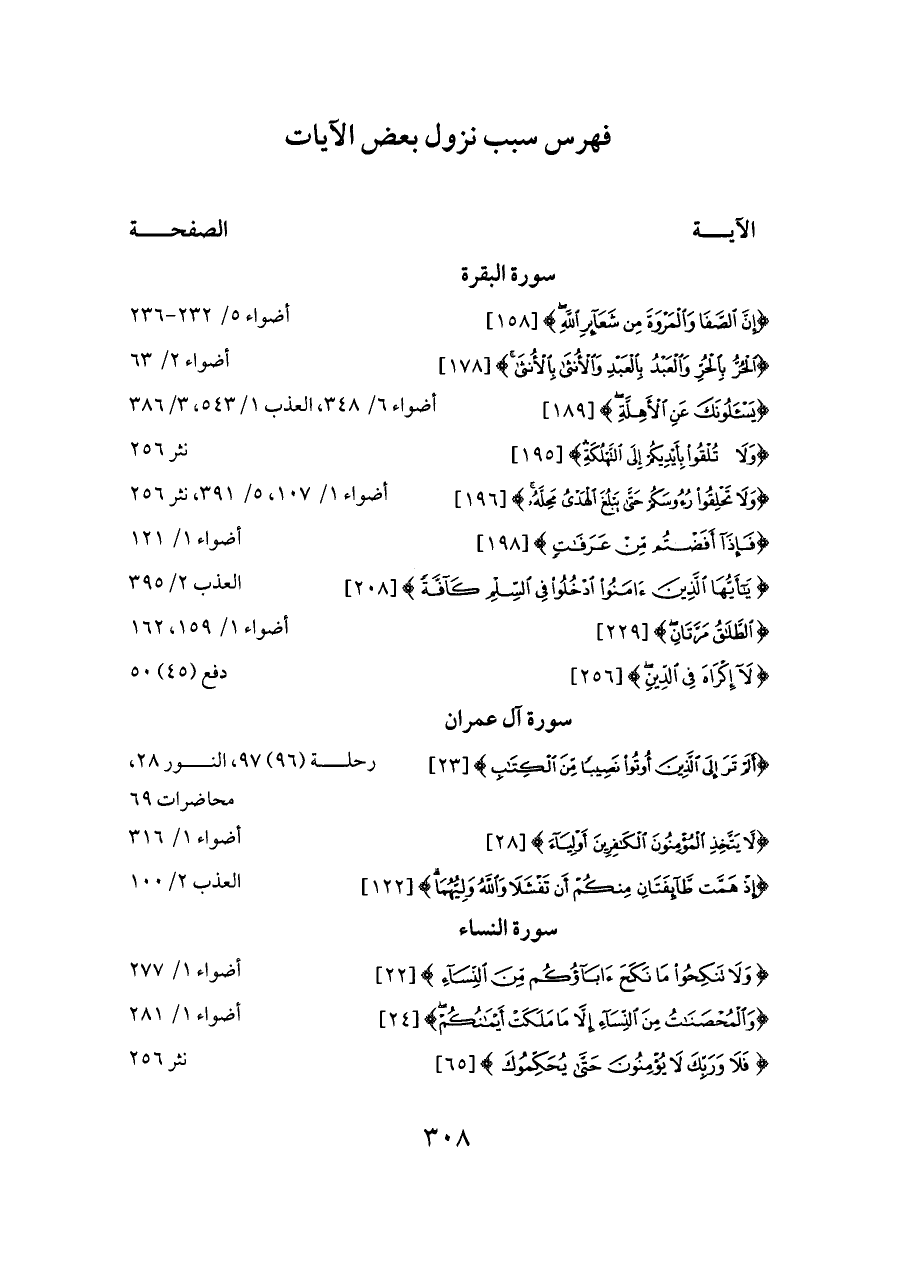 فهرس سبب نزول بعض الآيات
الآيــــة الصفحــــة
سورة البقرة
﴿إِنَّ ٱلصَّفَا وَٱلْمَرْوَةَ مِن شَعَآئِرِ ٱللَّهِۖ﴾ [١٥٨] أضواء ٥/ ٢٣٢-٢٣٦
﴿ٱلْحُرُّ بِٱلْحُرِّ وَٱلْعَبْدُ بِٱلْعَبْدِ وَٱلْأُنثَىٰ بِٱلْأُنثَىٰۚ﴾ [١٧٨] أضواء ٢/ ٦٣
﴿يَسْـَٔلُونَكَ عَنِ ٱلْأَهِلَّةِۖ﴾ [١٨٩] أضواء ٦/ ٣٤٨، العذب ١/ ٥٤٣، ٣/ ٣٨٦
﴿وَلَا تُلْقُوا۟ بِأَيْدِيكُمْ إِلَى ٱلتَّهْلُكَةِۛ﴾ [١٩٥] نثر ٢٥٦
﴿وَلَا تَحْلِقُوا۟ رُءُوسَكُمْ حَتَّىٰ يَبْلُغَ ٱلْهَدْىُ مَحِلَّهُۥۚ﴾ [١٩٦] أضواء ١/ ١٠٧، ٥/ ٣٩١، نثر ٢٥٦
﴿فَإِذَآ أَفَضْتُم مِّنْ عَرَفَـٰتٍ﴾ [١٩٨] أضواء ١/ ١٢١
﴿يَـٰٓأَيُّهَا ٱلَّذِينَ ءَامَنُوا۟ ٱدْخُلُوا۟ فِى ٱلسِّلْمِ كَآفَّةً﴾ [٢٠٨] العذب ٢/ ٣٩٥
﴿ٱلطَّلَـٰقُ مَرَّتَانِۖ﴾ [٢٢٩] أضواء ١/ ١٥٩، ١٦٢
﴿لَآ إِكْرَاهَ فِى ٱلدِّينِۖ﴾ [٢٥٦] دفع (٤٥) ٥٠
سورة آل عمران
﴿أَلَمْ تَرَ إِلَى ٱلَّذِينَ أُوتُوا۟ نَصِيبًا مِّنَ ٱلْكِتَـٰبِ﴾ [٢٣] رحلــــة (٩٦) ٩٧، النــــور ٢٨،
محاضرات ٦٩
﴿لَّا يَتَّخِذِ ٱلْمُؤْمِنُونَ ٱلْكَـٰفِرِينَ أَوْلِيَآءَ﴾ [٢٨] أضواء ١/ ٣١٦
﴿إِذْ هَمَّت طَّآئِفَتَانِ مِنكُمْ أَن تَفْشَلَا وَٱللَّهُ وَلِيُّهُمَاۗ﴾ [١٢٢] العذب ٢/ ١٠٠
سورة النساء
﴿وَلَا تَنكِحُوا۟ مَا نَكَحَ ءَابَآؤُكُم مِّنَ ٱلنِّسَآءِ﴾ [٢٢] أضواء ١/ ٢٧٧
﴿وَٱلْمُحْصَنَـٰتُ مِنَ ٱلنِّسَآءِ إِلَّا مَا مَلَكَتْ أَيْمَـٰنُكُمْۖ﴾ [٢٤] أضواء ١/ ٢٨١
﴿فَلَا وَرَبِّكَ لَا يُؤْمِنُونَ حَتَّىٰ يُحَكِّمُوكَ﴾ [٦٥] نثر ٢٥٦
٣٠٨